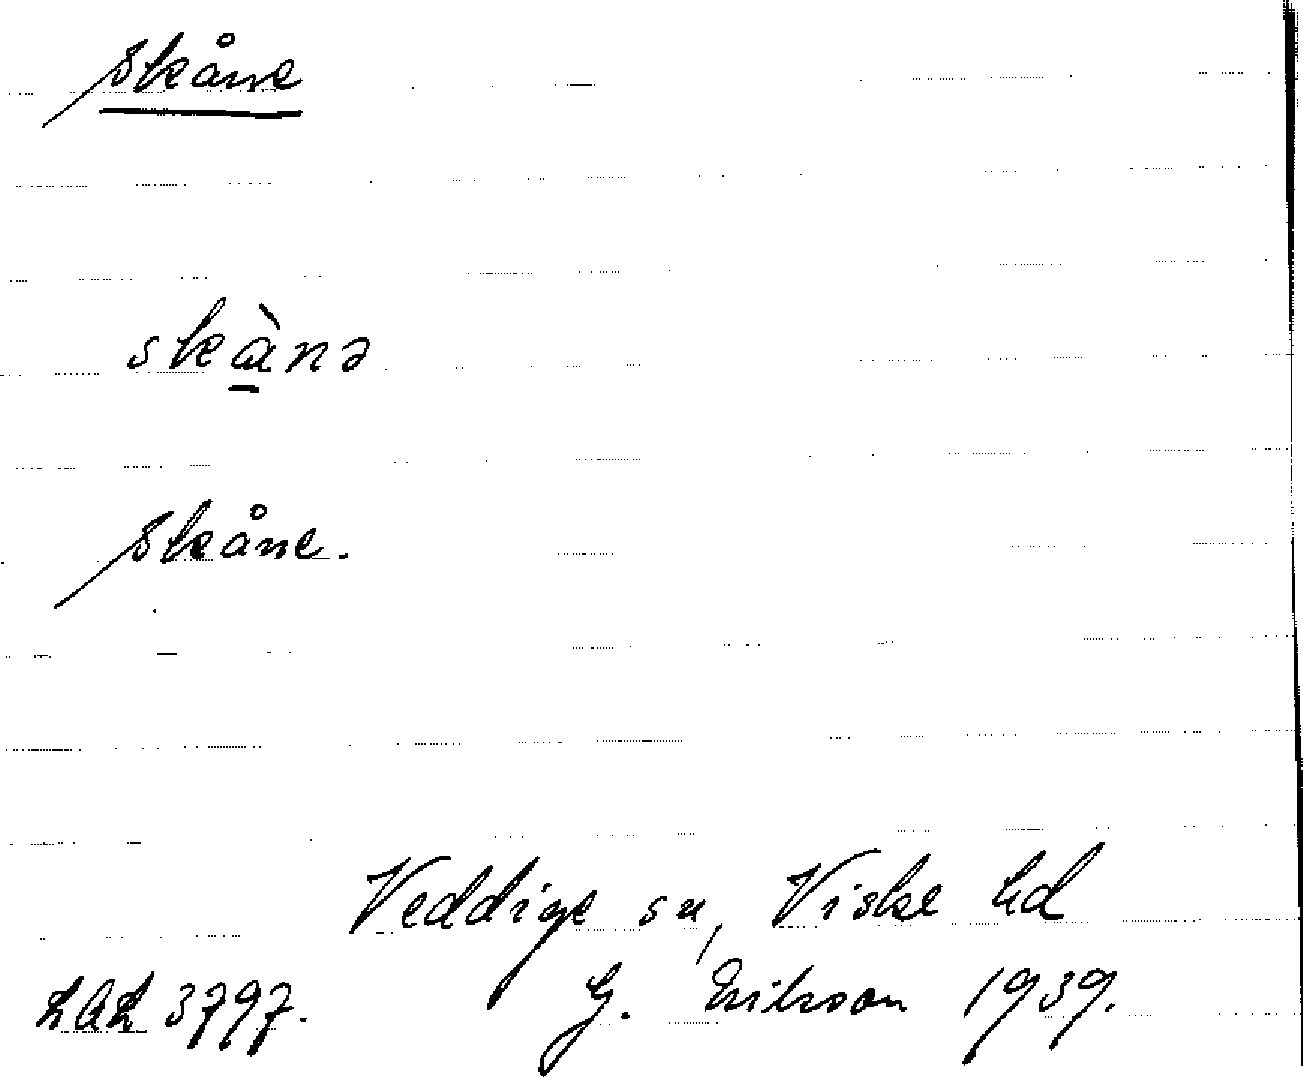 Skåne
skànə
Skåne.
Veddige sn, Viske hd
LAL 3797. G. Erikson 1939.